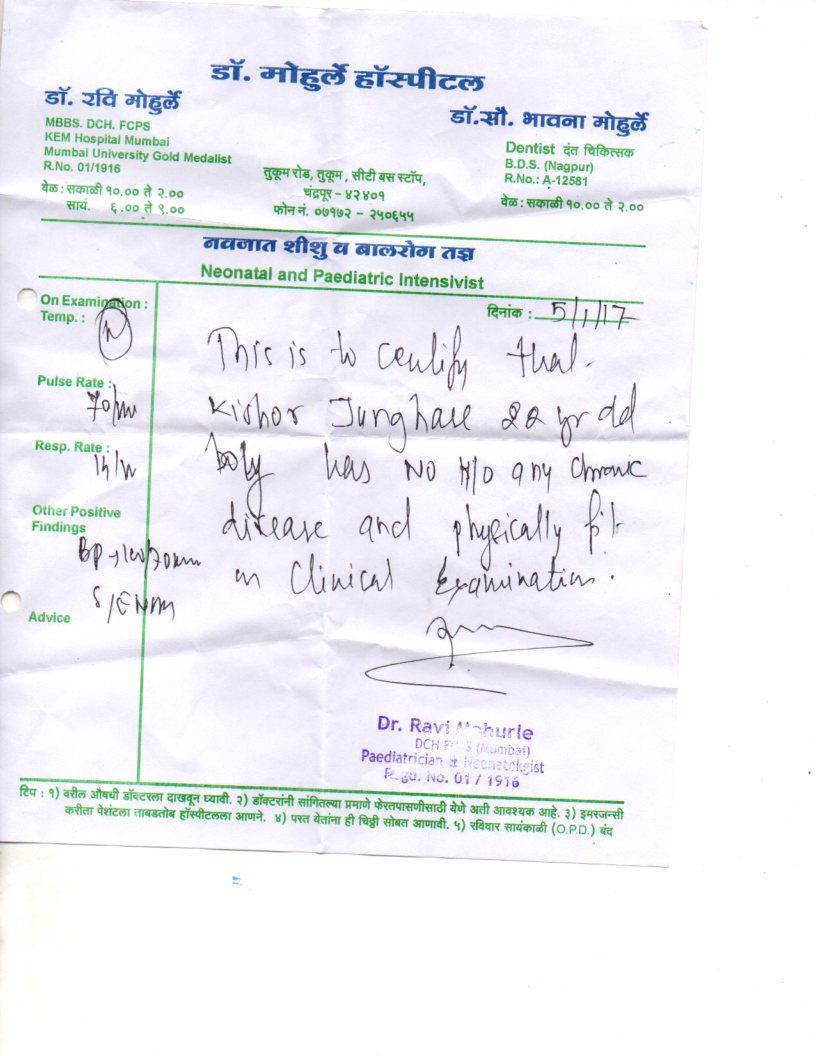 डॉ. मोहुर्ले हॉस्पीटल
डॉ. रवि मोहुर्ले
MBBS. DCH. FCPS
KEM Hospital Mumbai
Mumbai University Gold Medalist
R.No. 01/1916
वेळ : सकाळी १०.०० ते २.००
सायं. ६.०० ते ९.००
तुकूम रोड, तुकूम, सीटी बस स्टॉप,
चंद्रपूर - ४२४०१
फोन नं. ०७१७२ - २५०६५५
डॉ.सौ. भावना मोहुर्ले
Dentist दंत चिकित्सक
B.D.S. (Nagpur)
R.No.: A-12581
वेळ : सकाळी १०.०० ते २.००
नवजात शीशु व बालरोग तज्ञ
Neonatal and Paediatric Intensivist
दिनांक : 5/1/17
On Examination :
Temp. : N
Pulse Rate :
70/m
Resp. Rate :
Other Positive
Findings
BP
Advice
This is to certify that
Kishor Junghare 22 yr old
boy has NO H/O any chronic
disease and physically fit
on Clinical Examination.
Dr. Ravi Mohurle
DCH FCPS (Mumbai)
Paediatrician & Neonatologist
Regd. No. 01 / 1916
टिप : १) वरील औषधी डॉक्टरला दाखवून घ्यावी. २) डॉक्टरांनी सांगितल्या प्रमाणे फेरतपासणीसाठी येणे अती आवश्यक आहे. ३) इमरजन्सी
करीता पेशंटला ताबडतोब हॉस्पीटलला आणने. ४) परत येतांना ही चिठ्ठी सोबत आणावी. ५) रविवार सायंकाळी (O.P.D.) बंद